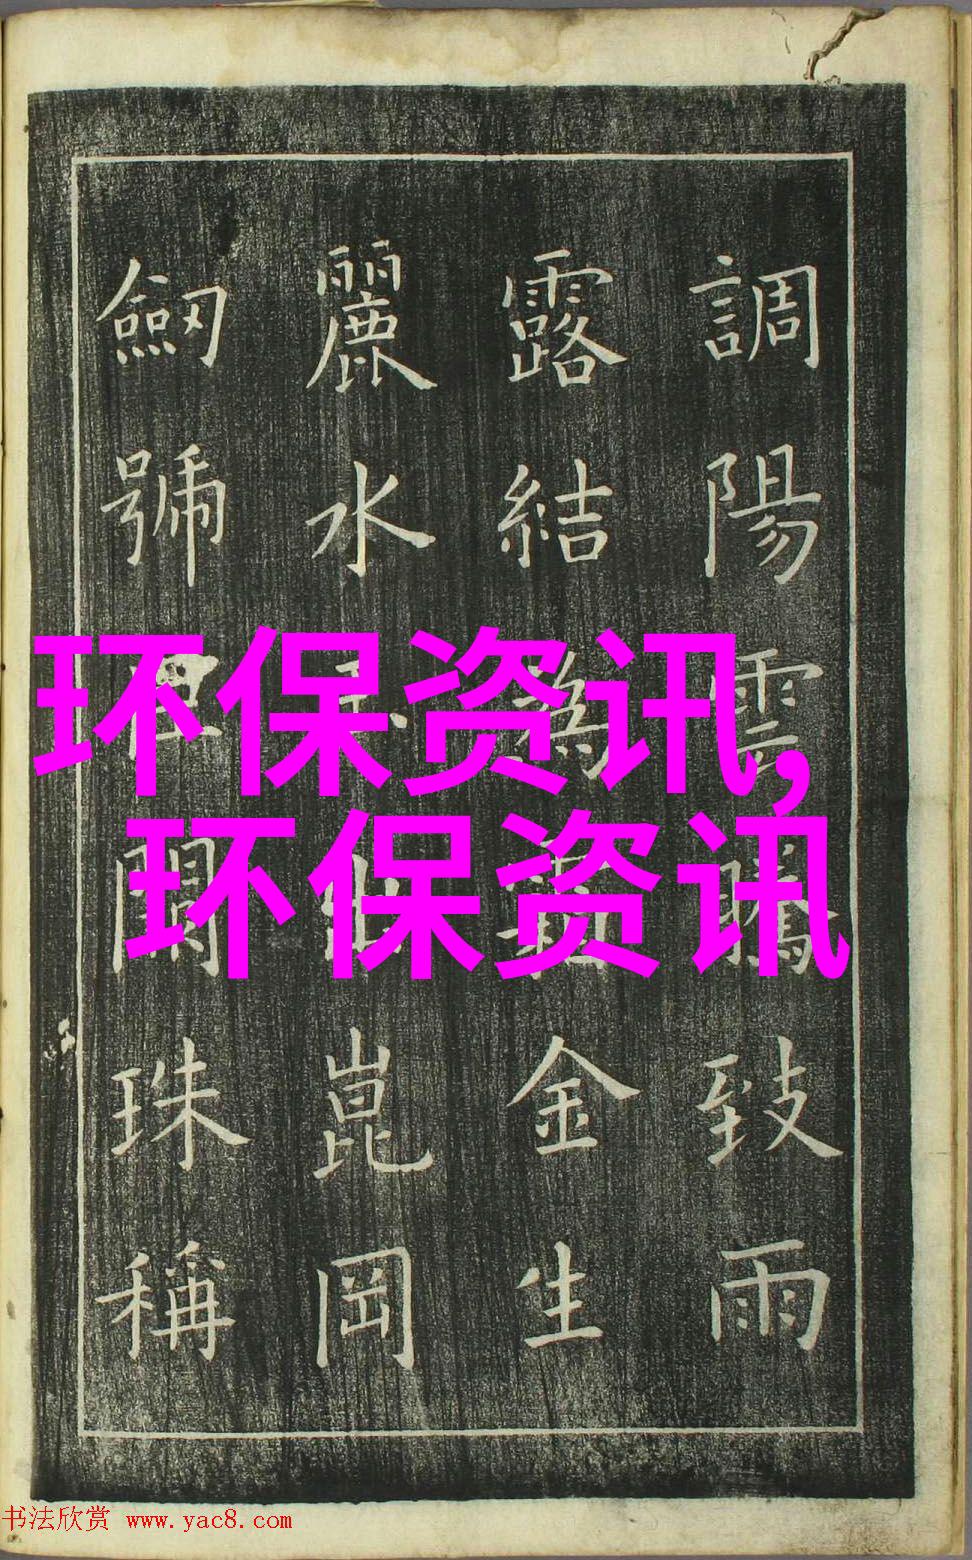 調陽雲騰致雨
露結爲霜金生
麗水崑岡
劒號巨闕珠稱
环保资讯,
环保资讯
书法欣赏 www.yac8.com